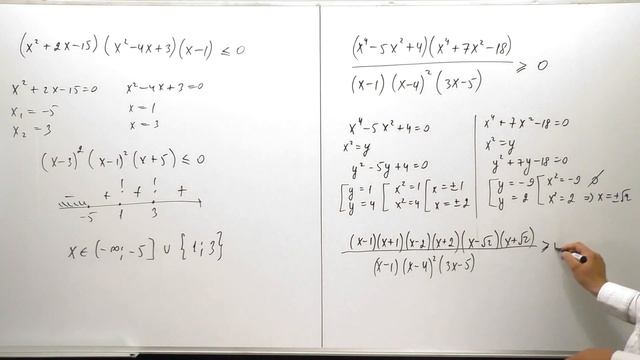 (x² + 2x - 15) (x² - 4x + 3) (x - 1) ≤ 0
x² + 2x - 15 = 0
x₁ = -5
x₂ = 3
x² - 4x + 3 = 0
x = 1
x = 3
(x - 3)² (x - 1)² (x + 5) ≤ 0
- + ! + ! +
-5 1 3
x ∈ (-∞; -5] ∪ {1; 3}
(x⁴ - 5x² + 4)(x⁴ + 7x² - 18)
(x - 1) (x - 4)² (3x - 5)
≥ 0
x⁴ - 5x² + 4 = 0
x² = y
y² - 5y + 4 = 0
[ y = 1 [ x² = 1 [ x = ±1
[ y = 4 [ x² = 4 [ x = ±2
x⁴ + 7x² - 18 = 0
x² = y
y² + 7y - 18 = 0
[ y = -9 [ x² = -9 ∅
[ y = 2 [ x² = 2 ⇒ x = ±√2
(x - 1)(x + 1)(x - 2)(x + 2)(x - √2)(x + √2)
(x - 1) (x - 4)² (3x - 5)
≥